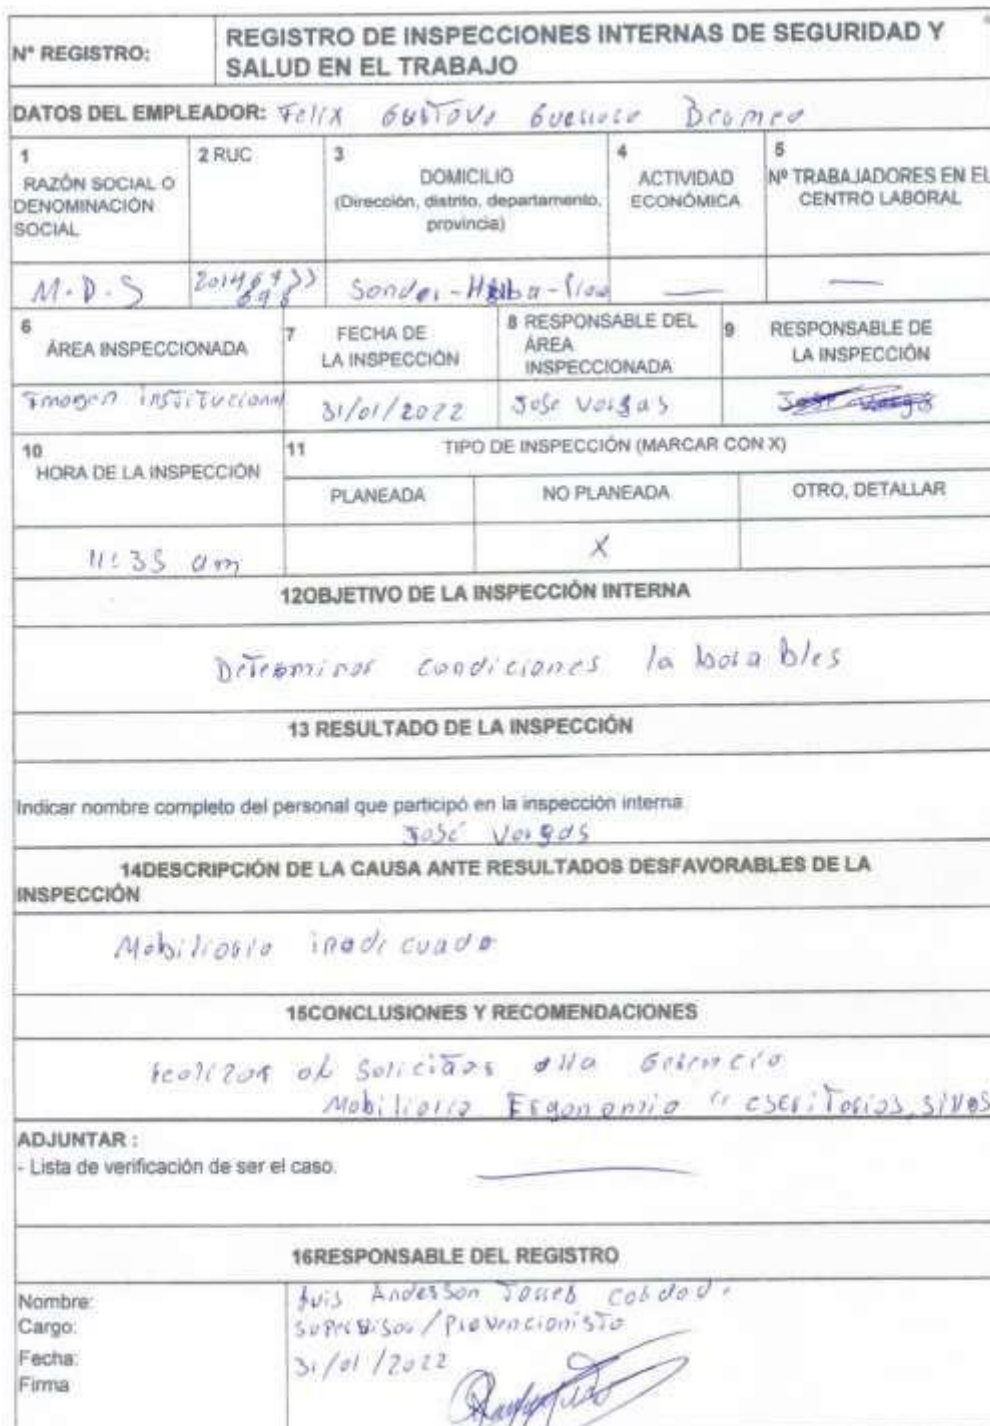 N° REGISTRO:
REGISTRO DE INSPECCIONES INTERNAS DE SEGURIDAD Y
SALUD EN EL TRABAJO
DATOS DEL EMPLEADOR: Felix Gustavo
1
RAZÓN SOCIAL O
DENOMINACIÓN
SOCIAL
2 RUC
3
DOMICILIO
(Dirección, distrito, departamento,
provincia)
4
ACTIVIDAD
ECONÓMICA
5
Nº TRABAJADORES EN EL
CENTRO LABORAL
M.D.S
6
ÁREA INSPECCIONADA
7
FECHA DE
LA INSPECCIÓN
8 RESPONSABLE DEL
ÁREA
INSPECCIONADA
9
RESPONSABLE DE
LA INSPECCIÓN
Imagen institucional
31/01/2022
Jose Vargas
10
HORA DE LA INSPECCIÓN
11
TIPO DE INSPECCIÓN (MARCAR CON X)
PLANEADA
NO PLANEADA
OTRO, DETALLAR
11:35 am
X
12OBJETIVO DE LA INSPECCIÓN INTERNA
Determinar condiciones laborables
13 RESULTADO DE LA INSPECCIÓN
Indicar nombre completo del personal que participó en la inspección interna.
José Vargas
14DESCRIPCIÓN DE LA CAUSA ANTE RESULTADOS DESFAVORABLES DE LA
INSPECCIÓN
Mobiliario inadecuado
15CONCLUSIONES Y RECOMENDACIONES
Realizar Solicitar Gerencia
Mobiliario escritorios, sillas
ADJUNTAR :
- Lista de verificación de ser el caso.
16RESPONSABLE DEL REGISTRO
Nombre: Luis Andersson Torres
Cargo: Supervisor/Prevencionista
Fecha: 31/01/2022
Firma